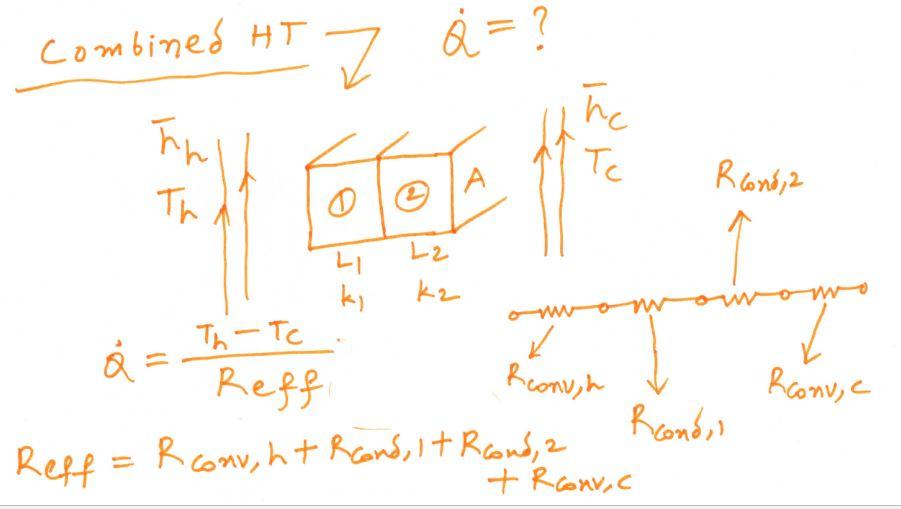 Combined HT
Q̇ = ?
h̄h
Th
① ②
A
L1 L2
k1 k2
h̄c
Tc
Rcond,2
Rconv,h
Rcond,1
Rconv,c
Q̇ = Th − Tc / Reff
Reff = Rconv,h + Rcond,1 + Rcond,2
+ Rconv,c